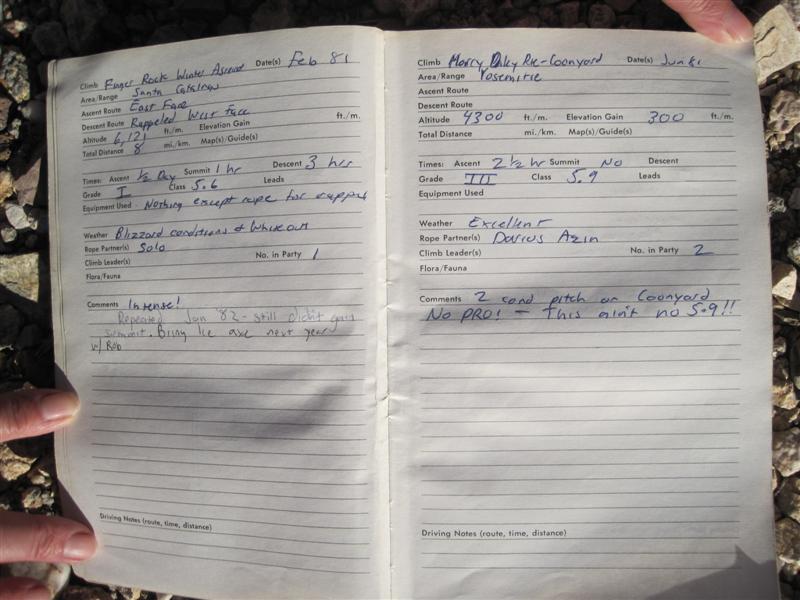 Climb Finger Rock Winter Ascent Date(s) Feb 81
Area/Range Santa Catalinas
Ascent Route East Face
Descent Route Rappeled West Face
Altitude 6,121 ft./m. Elevation Gain ft./m.
Total Distance 8 mi./km. Map(s)/Guide(s)
Times: Ascent ½ Day Summit 1 hr Descent 3 hrs
Grade I Class 5.6 Leads
Equipment Used Nothing except rope for rappel
Weather Blizzard conditions & Whiteout
Rope Partner(s) Solo
Climb Leader(s) No. in Party 1
Flora/Fauna
Comments Intense!
Repeated Jan '82 - still didn't gain
summit. Bring Ice axe next year
w/ Rob
Driving Notes (route, time, distance)
Climb Morry Daley Rte-Coonyard Date(s) Jun 81
Area/Range Yosemitie
Ascent Route
Descent Route
Altitude 4300 ft./m. Elevation Gain 300 ft./m.
Total Distance mi./km. Map(s)/Guide(s)
Times: Ascent 2 ½ hr Summit No Descent
Grade III Class 5.9 Leads
Equipment Used
Weather Excellent
Rope Partner(s) Darius Azin
Climb Leader(s) No. in Party 2
Flora/Fauna
Comments 2 cond pitch on Coonyard
No PRO! - This ain't no 5.9!!
Driving Notes (route, time, distance)